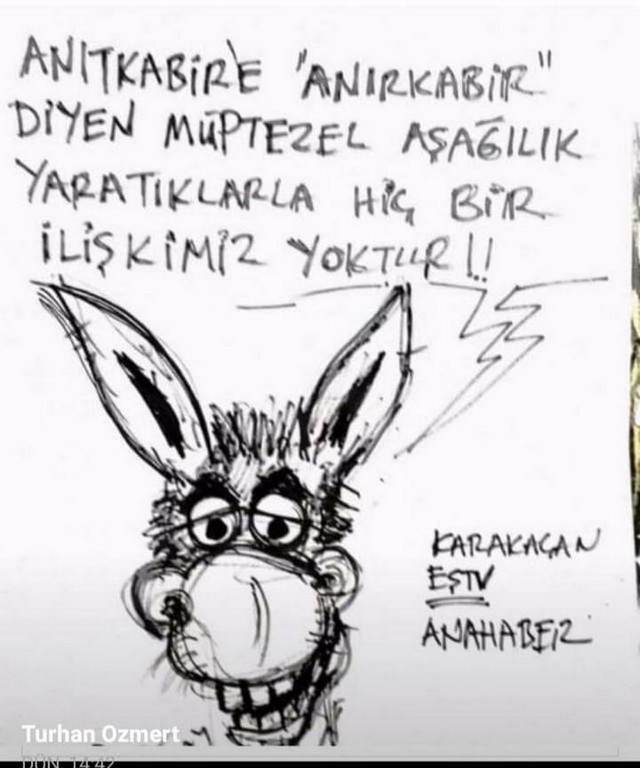 ANITKABİR'E "ANIRKABİR"
DİYEN MÜPTEZEL AŞAĞILIK
YARATIKLARLA HİÇ BİR
İLİŞKİMİZ YOKTUR!!
KARAKAÇAN
EŞTV
ANAHABER
Turhan Ozmert
DÜN, 14:42